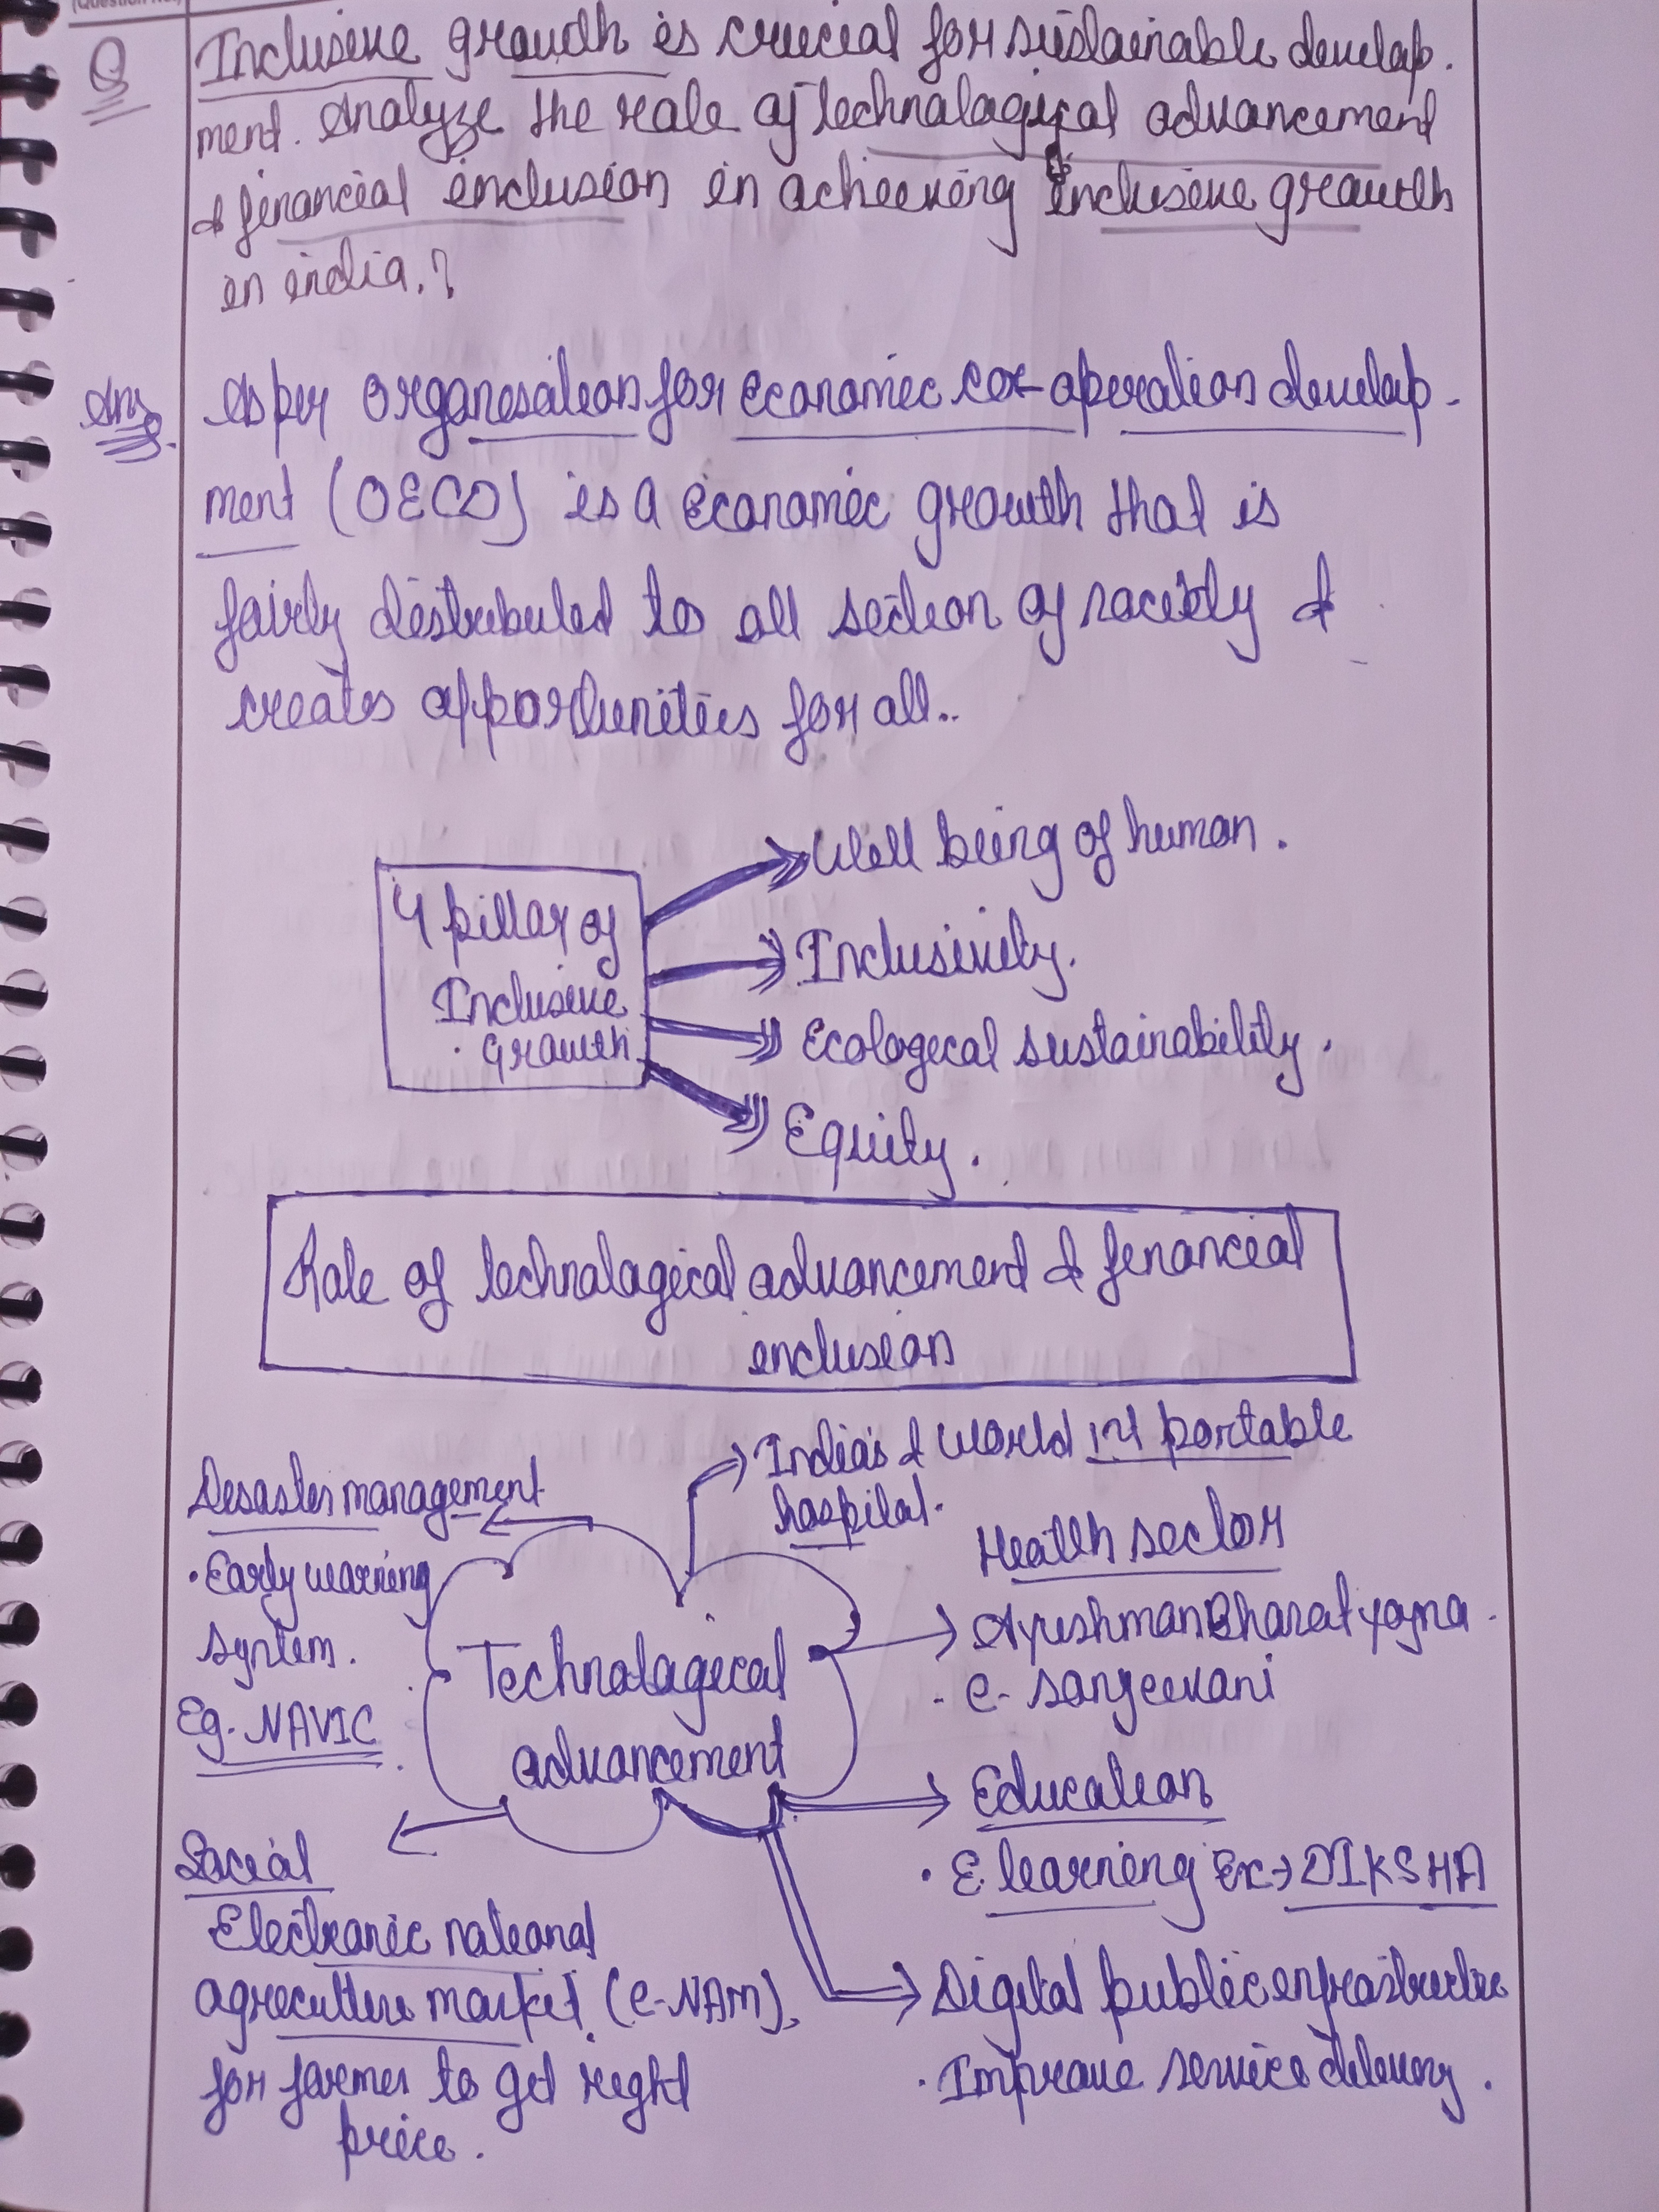 (Question No.)
Q
Inclusive growth is crucial for sustainable develop-
ment. Analyze the role of technological advancement
& financial inclusion in achieving inclusive growth
in india.?
Ans
As per Organisation for Economic co-operation develop-
ment (OECD) is a economic growth that is
fairly distributed to all section of society &
creates opportunities for all..
4 pillar of
Inclusive
growth
Well being of human.
Inclusivity.
Ecological sustainability.
Equity.
Role of technological advancement & financial
inclusion
India's & World 1st portable
hospital.
Disaster management
• Early warning
system.
Eg. NAVIC
Technological
advancement
Health sector
Ayushman Bharat yojna
- e-sanjeevani
Education
• E learning Ex→ DIKSHA
Digital public infrastructure
• Improve service delivery.
Social
Electronic national
agriculture market (e-NAM)
for farmer to get right
price.